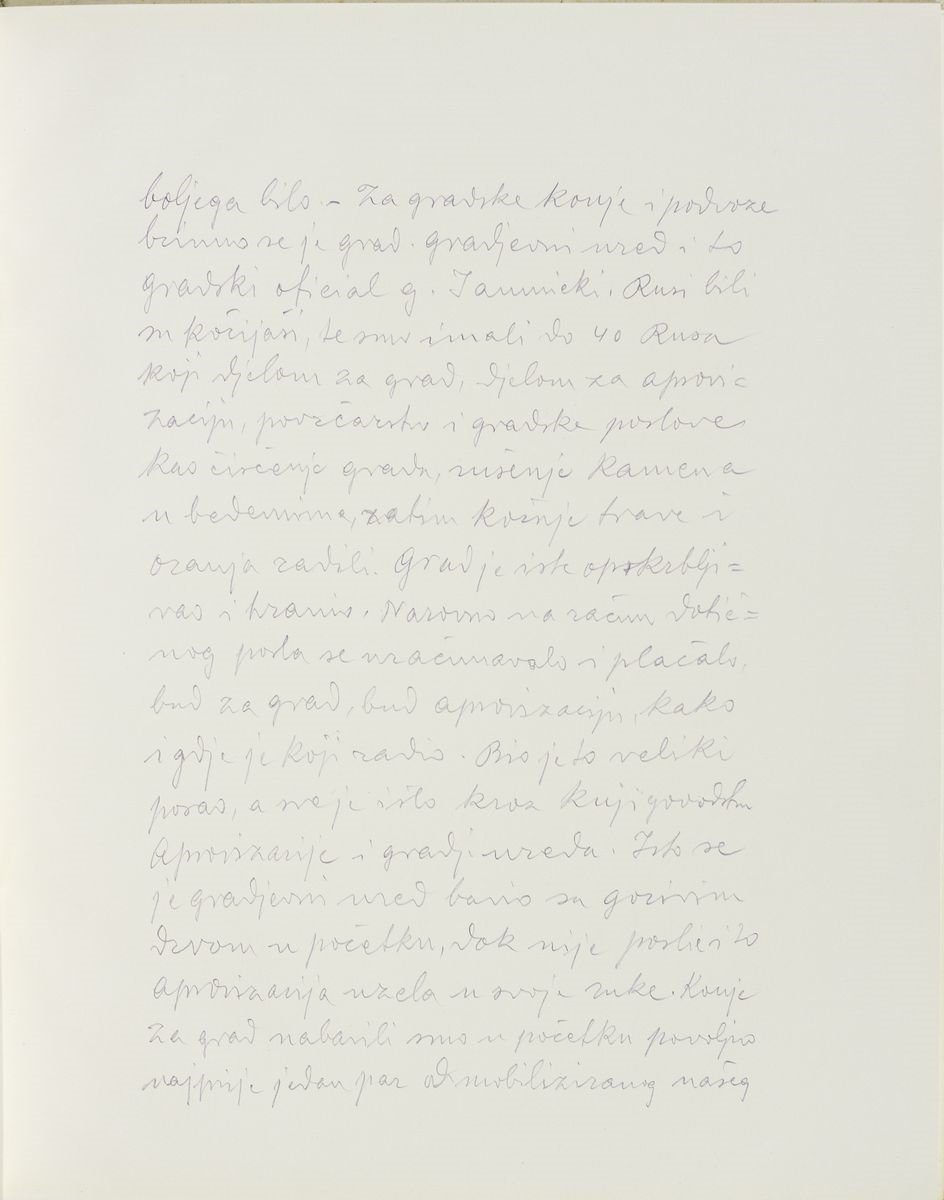 boljega bilo. – Za gradske konje i podvoze
brinuo se je grad. gradjevni ured i to
gradski oficial g. Jamnicki. Rusi bili
su kočijaši, te smo imali do 40 Rusa
koji djelom za grad, djelom za aprovi=
zaciju, povrčarstvo i gradske poslove
kao čisčenje grada, rušenje kamena
u bedemima, zatim košnje trave i
oranja radili. Grad je iste opskrblji=
vao i hranio. Naravno na račun dotič=
nog posla se uračunavalo i plačalo,
bud za grad, bud aprovizaciju, kako
i gdje je koji radio. Bio je to veliki
posao, a sve je išlo kroz knjigovodstvo
Aprovizacije i gradj. ureda. Isto se
je gradjevni ured bavio sa gorivim
drvom u početku, dok nije poslie i to
aprovizacija uzela u svoje ruke. Konje
za grad nabavili smo u početku povoljno
najprije jedan par od mobiliziranog našeg